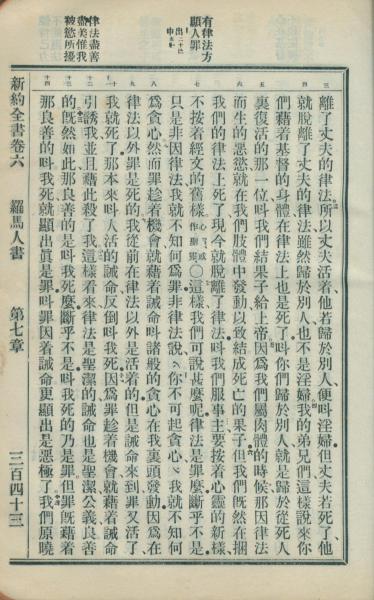 有律法方
顯人罪
出二十○
申五○
律法盡善
盡美惟我
被慾所擾
三
離了丈夫的律法所以丈夫活着他若歸於別人便呌淫婦但丈夫若死了他
就脫離了丈夫的律法雖然歸於別人也不是淫婦我的弟兄們這樣說來你
四
們藉着基督的身體在律法上也是死了呌你們歸於別人就是歸於從死人
裏復活的那一位呌我們結果子給上帝因爲我們屬肉體的時候那因律法
五
而生的惡慾就在我們肢體中發動以致結成死亡的果子但我們旣然在捆
六
我們的律法上死了現今就脫離了律法呌我們服事主要按着心靈的新樣
七
不按着經文的舊樣心靈或作聖靈○這樣我們可說甚麼呢律法是罪麼斷乎不是
只是非因律法我就不知何爲罪非律法說你不可起貪心我就不知何
八
爲貪心然而罪趁着機會就藉着誡命呌諸般的貪心在我裏頭發動因爲在
九
律法以外罪是死的我從前在律法以外是活着的但是誡命來到罪又活了
十
我就死了那本來呌人活的誡命反倒呌我死因爲罪趁着機會就藉着誡命
十一
引誘我並且藉此殺了我這樣看來律法是聖潔的誡命也是聖潔公義良善
十二
十三
的旣然如此那良善的是呌我死麼斷乎不是呌我死的乃是罪但罪旣藉着
十四
那良善的呌我死就顯出眞是罪呌罪因着誡命更顯出是惡極了我們原曉
新約全書卷六 羅馬人書 第七章 三百四十三